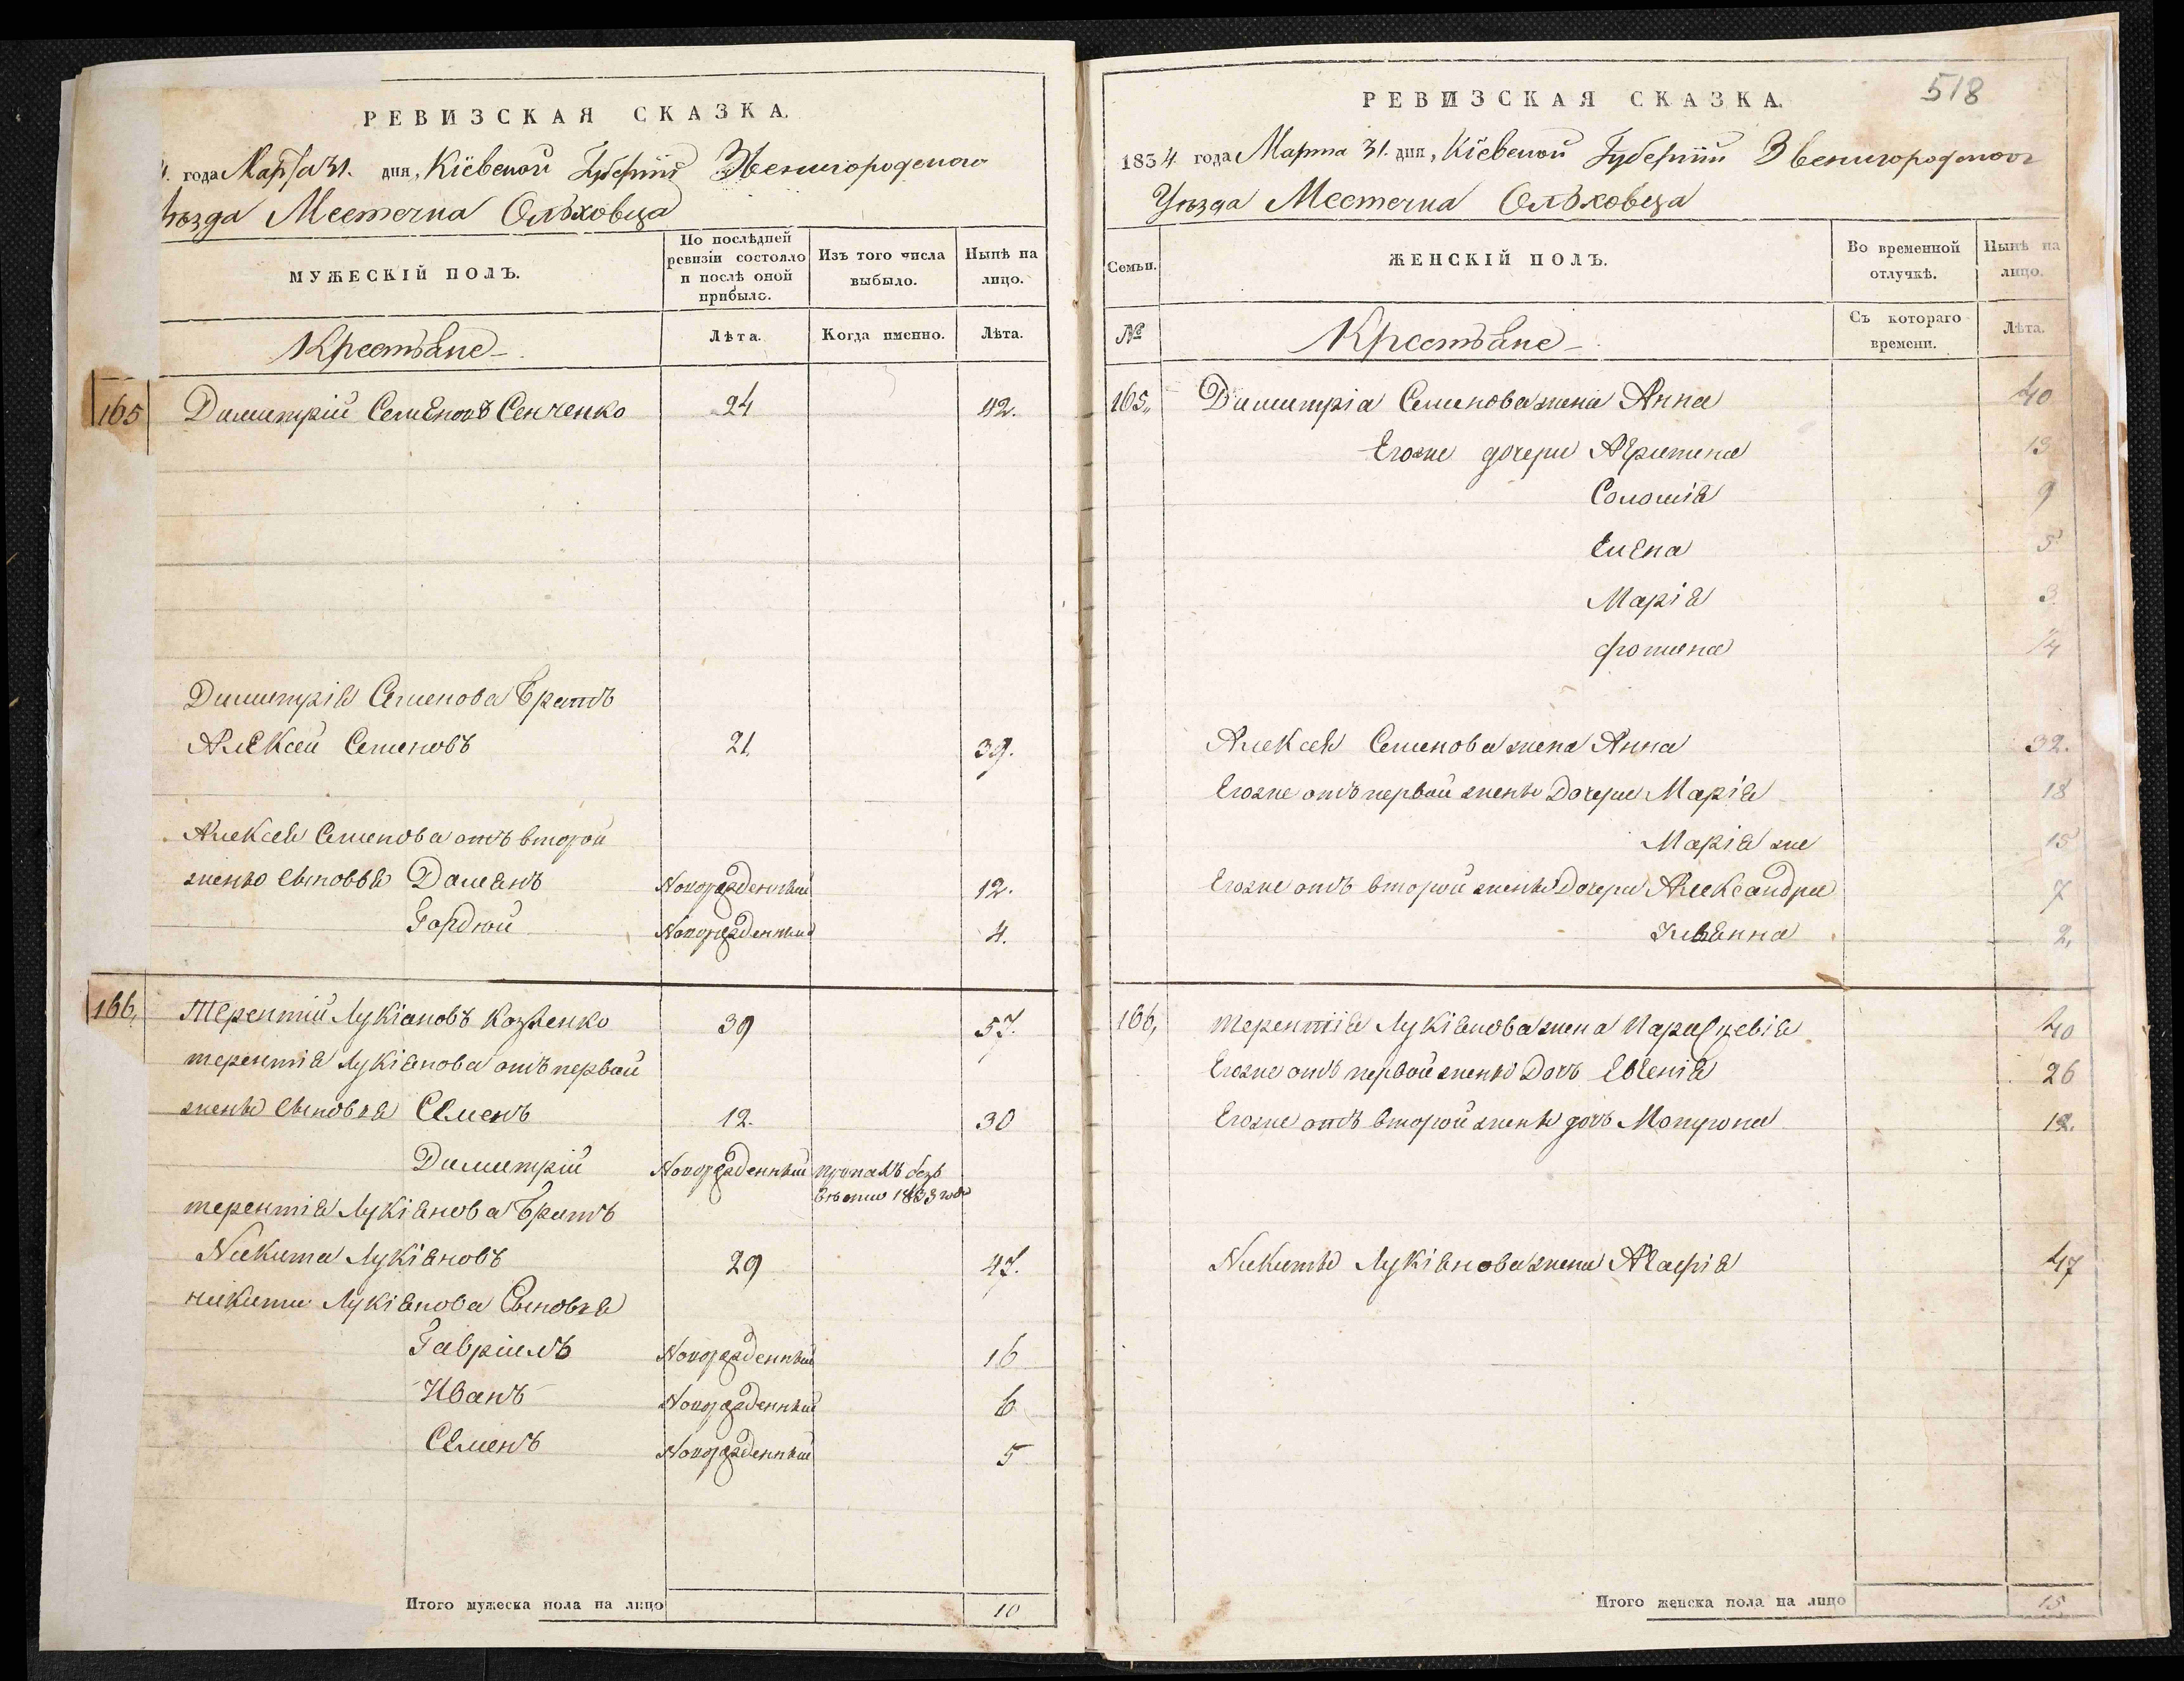 РЕВИЗСКАЯ СКАЗКА.
года Марта 31. дня, Кіевской Губерніи Звенигородскаго
ѣзда Местечка Ольховца
МУЖЕСКІЙ ПОЛЪ.
По послѣдней ревизіи состояло и послѣ оной прибыло.
Изъ того числа выбыло.
Нынѣ на лицо.
Крестьяне
Лѣта.
Когда именно.
Лѣта.
165 Димитрій Семеновъ Сенченко 24 42.
Димитрія Семенова братъ
Алексей Семеновъ 21. 39.
Алексея Семенова отъ второй
жены сыновья Дамянъ Новорожденный 12.
Гордюй Новорожденный 4.
166, Терентий Лукіановъ 39 57.
терентія Лукіянова отъ первой
жены сыновья Семенъ 12. 30
Димитрій Новорожденный пропалъ безъ
вѣсти 1833 года
терентія Лукіянова братъ
Никита Лукіяновъ 29 47.
никиты Лукіянова сыновья
Гавріилъ Новорожденный 16
Иванъ Новорожденный 6
Семенъ Новорожденный 5
Итого мужеска пола на лицо 10
518
РЕВИЗСКАЯ СКАЗКА.
1834 года Марта 31. дня, Кіевской Губерніи Звенигородскаго
Уѣзда Местечка Ольховца
Семьи.
ЖЕНСКІЙ ПОЛЪ.
Во временной отлучкѣ.
Нынѣ на лицо.
№
Крестьяне
Съ котораго времени.
Лѣта.
165, Димитрія Семенова жена Анна 40
Егоже дочери Агрипина 13
Соломія 9
Елена 5
Марія 3
Фотина 1/4
Алексея Семенова жена Анна 32.
Егоже отъ первой жены Дочери Марія 18
Марія же 15
Егоже отъ второй жены Дочери Александра 7
Иулянна 2,
166, терентія Лукіянова жена Параскевія 40
Егоже отъ первой жены Дочь Евгенія 26
Егоже отъ второй жены дочь Мотрона 12.
Никиты Лукіянова жена Агафія 47
Итого женска пола на лицо 15